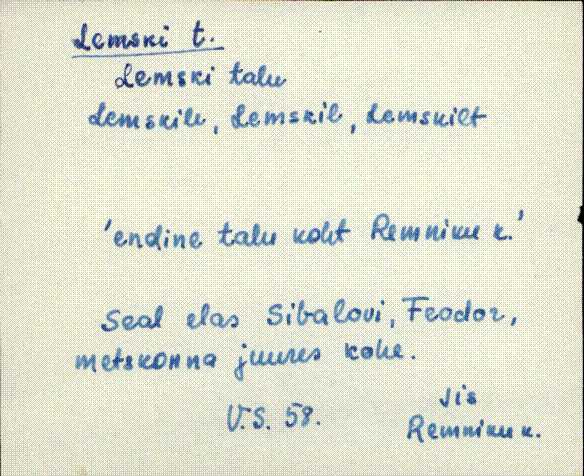 Lemski t.
Lemski talu
Lemskile, Lemskil, Lemskilt
'endine talu koht Remniku k.'
Seal elas Sibalovi, Feodor,
metskonna juures kohe.
V.S. 58.
Jis
Remniku k.